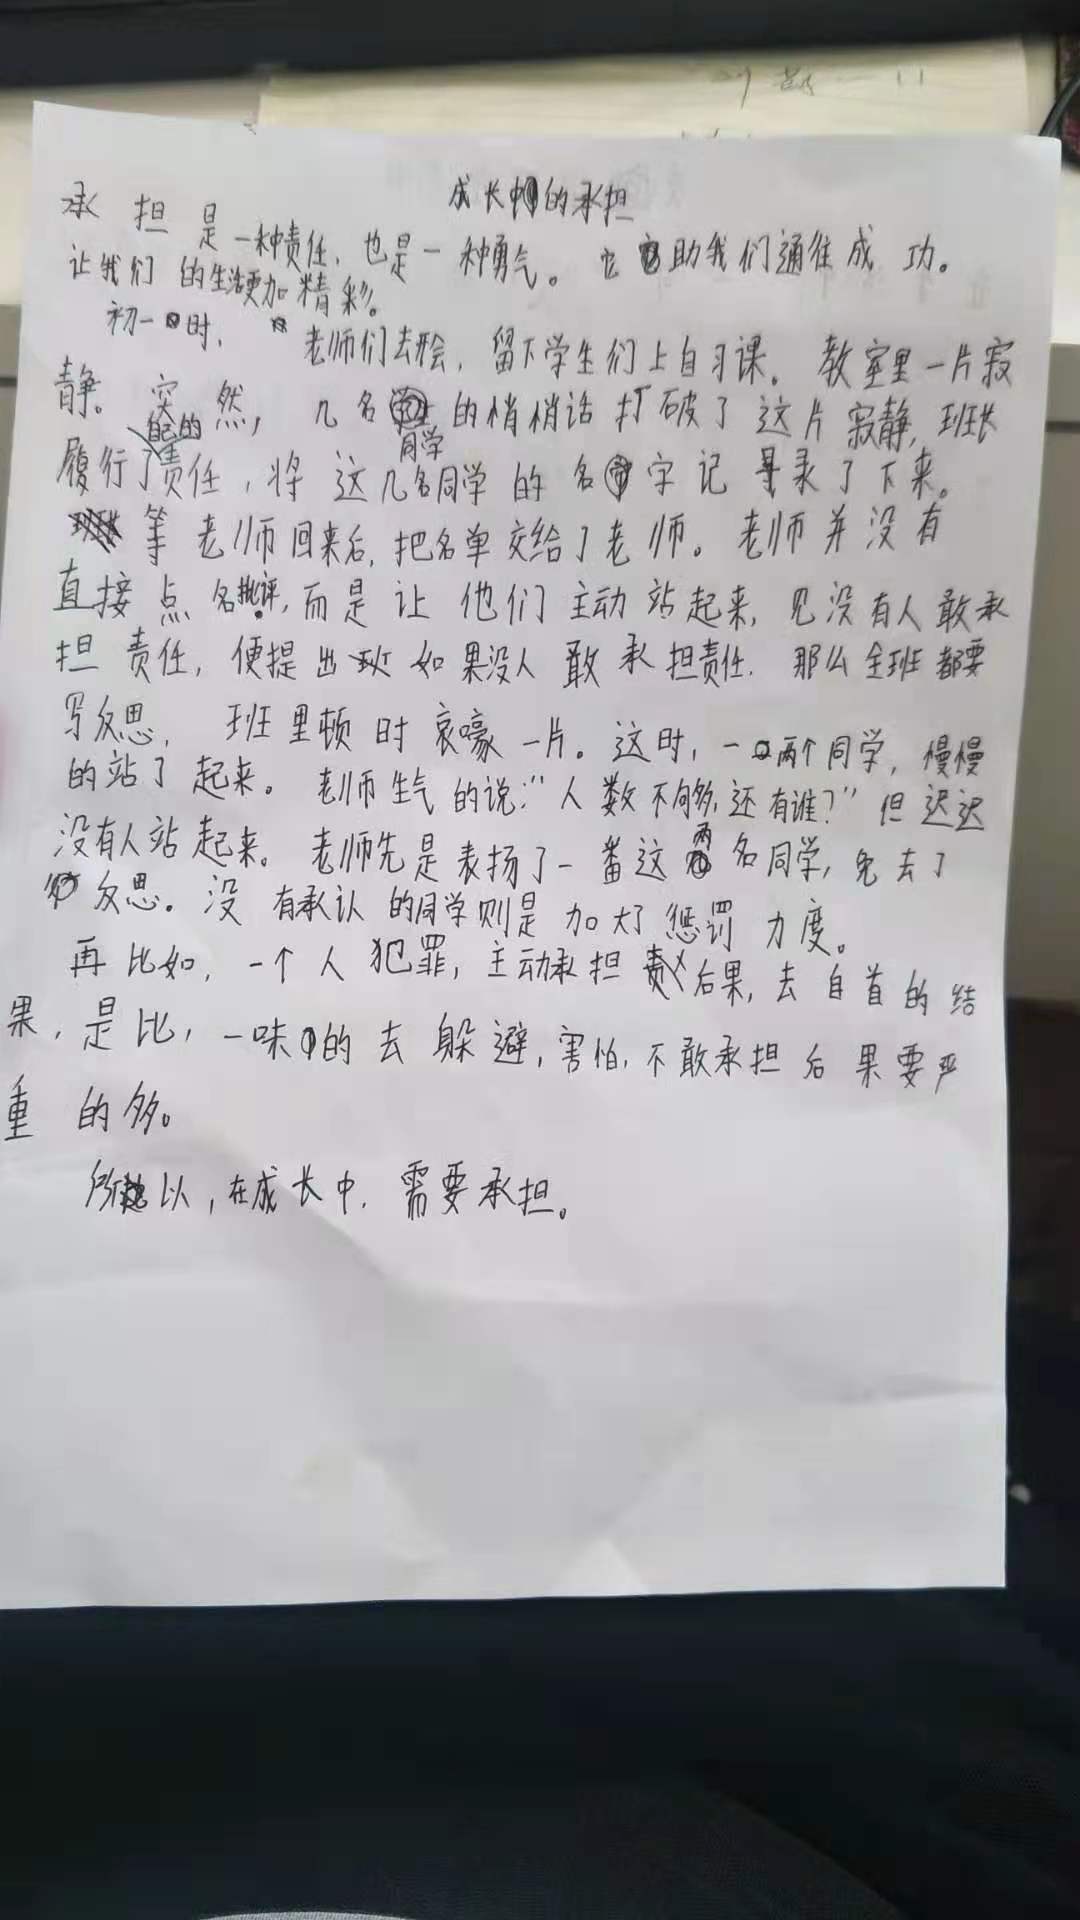 成长中的承担
承担是一种责任，也是一种勇气。它助我们通往成功。
让我们的生活更加精彩。
初一时，老师们去开会，留下学生们上自习课。教室里一片寂
静。突然，几名同学的悄悄话打破了这片寂静，班长
履行了自己的责任，将这几名同学的名字记录了下来。
等老师回来后，把名单交给了老师。老师并没有
直接点名批评，而是让他们主动站起来，见没有人敢承
担责任，便提出如果没人敢承担责任，那么全班都要
写反思，班里顿时哀嚎一片。这时，一两个同学，慢慢
的站了起来。老师生气的说：“人数不够，还有谁？”但迟迟
没有人站起来。老师先是表扬了一番这两名同学，免去了
反思。没有承认的同学则是加大了惩罚力度。
再比如，一个人犯罪，主动承担后果，去自首的结
果，是比，一味的去躲避，害怕，不敢承担后果要严
重的多。
所以，在成长中，需要承担。